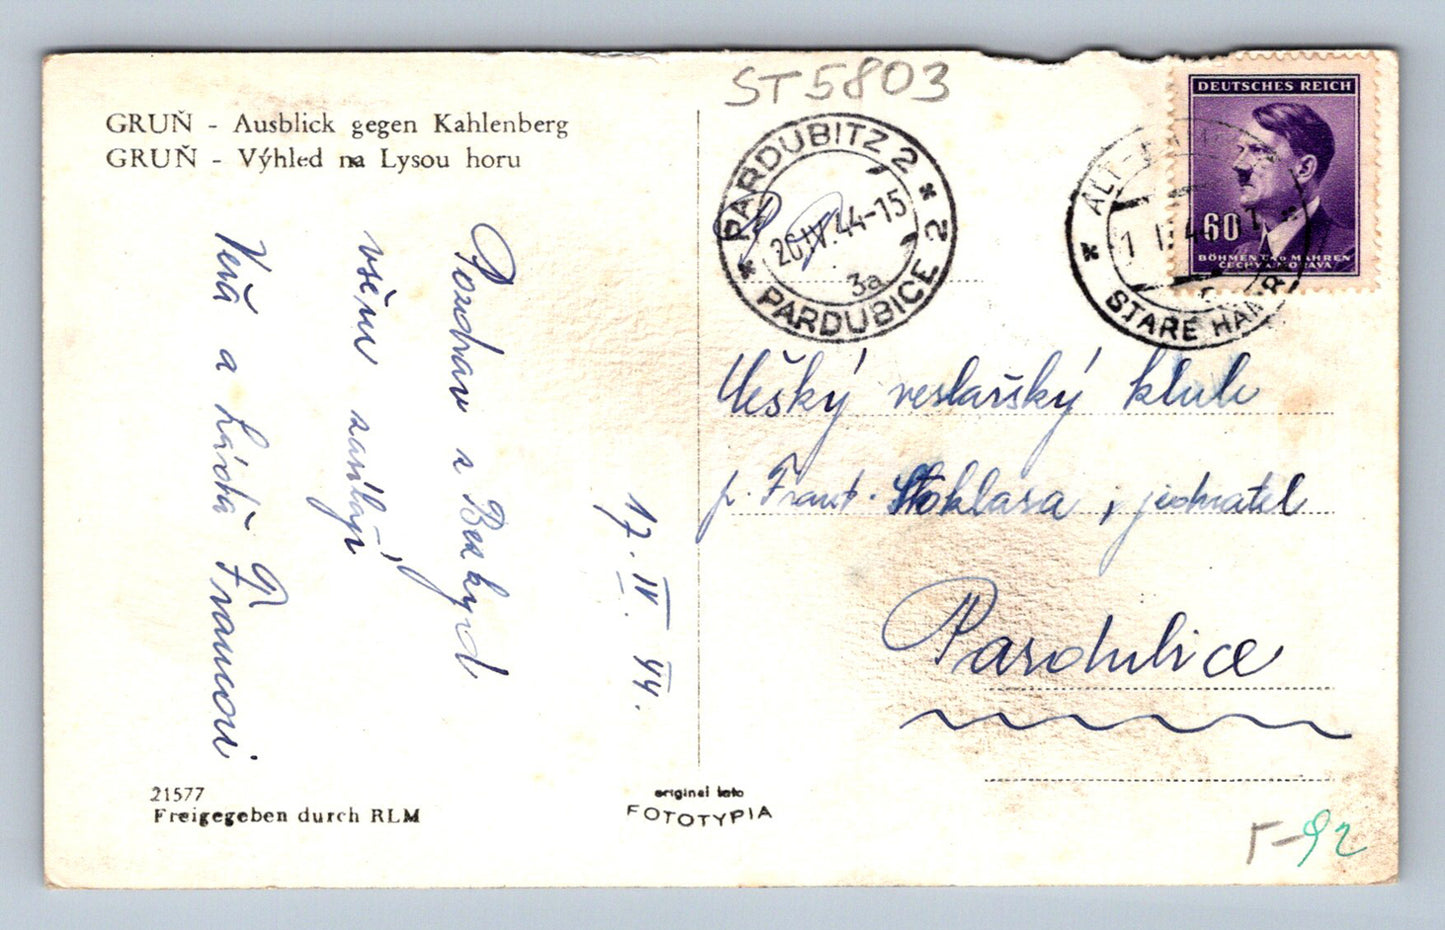 ST5803
GRUŇ - Ausblick gegen Kahlenberg
GRUŇ - Výhled na Lysou horu
PARDUBITZ 2
20.IV.44-15
3a
PARDUBICE 2
DEUTSCHES REICH
60
BÖHMEN UND MÄHREN
ČECHY A MORAVA
ALT
STARÉ HAMR
Pozdrav z Bezkyd
všem zasílají
Věra a Láďa Francovi
17. IV. 44.
veslařský klub
p. Frant. Stoklasa, jednatel
Pardubice
21577
Freigegeben durch RLM
original foto
FOTOTYPIA
r-92